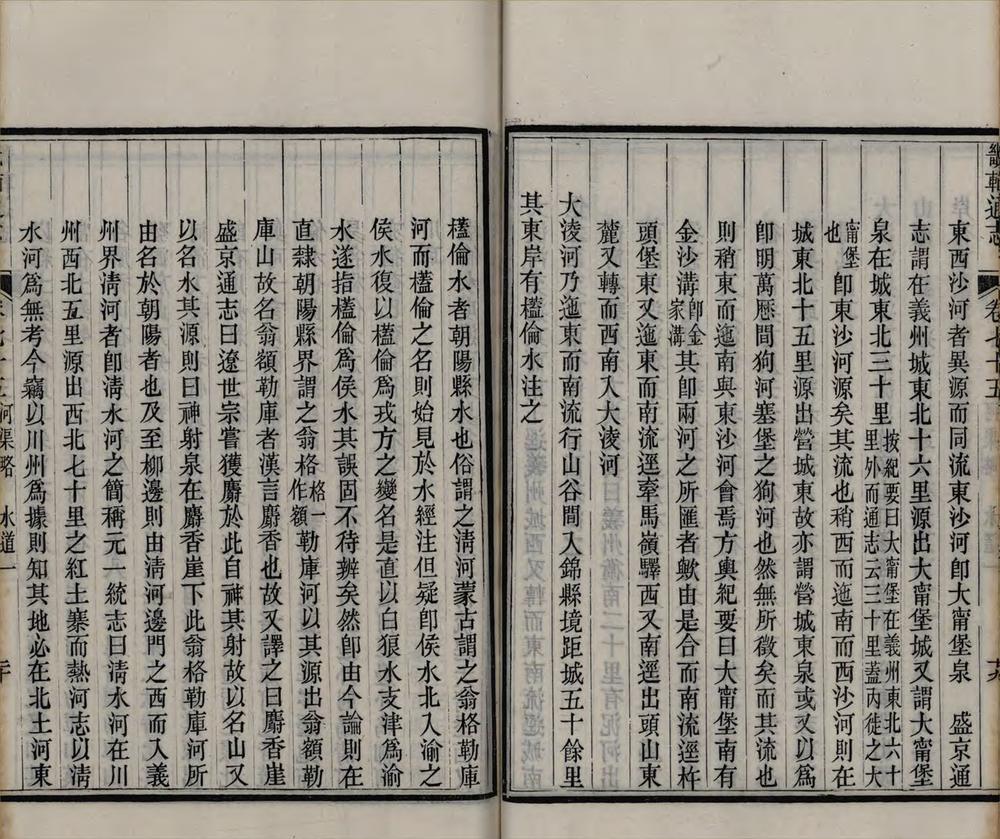 畿輔通志
卷七十五
東西沙河者異源而同流東沙河卽大甯堡泉　盛京通
志謂在義州城東北十六里源出大甯堡城又謂大甯堡
泉在城東北三十里按紀要曰大甯堡在義州東北六十里外而通志云三十里蓋內徙之大
甯堡也卽東沙河源矣其流也稍西而迤南而西沙河則在
城東北十五里源出營城東故亦謂營城東泉或又以爲
卽明萬厯間狗河塞堡之狗河也然無所徵矣而其流也
則稍東而迤南與東沙河會焉方輿紀要曰大甯堡南有
金沙溝卽金家溝其卽兩河之所匯者歟由是合而南流逕杵
頭堡東又迤東而南流逕牽馬嶺驛西又南逕出頭山東
麓又轉而西南入大淩河
大淩河乃迤東而南流行山谷間入錦縣境距城五十餘里
其東岸有㯼倫水注之
㯼倫水者朝陽縣水也俗謂之淸河蒙古謂之翁格勒庫
河而㯼倫之名則始見於水經注但疑卽侯水北入渝之
侯水復以㯼倫爲戎方之變名是直以白狼水支津爲渝
水遂指㯼倫爲侯水其誤固不待辨矣然卽由今論則在
直隸朝陽縣界謂之翁格格一作額勒庫河以其源出翁額勒
庫山故名翁額勒庫者漢言麝香也故又譯之曰麝香崖
盛京通志曰遼世宗嘗獲麝於此自神其射故以名山又
以名水其源則曰神射泉在麝香崖下此翁格勒庫河所
由名於朝陽者也及至柳邊則由淸河邊門之西而入義
州界淸河者卽淸水河之簡稱元一統志曰淸水河在川
州西北五里源出西北七十里之紅土寨而熱河志以淸
水河爲無考今竊以川州爲據則知其地必在北土河東
河渠略　水道一